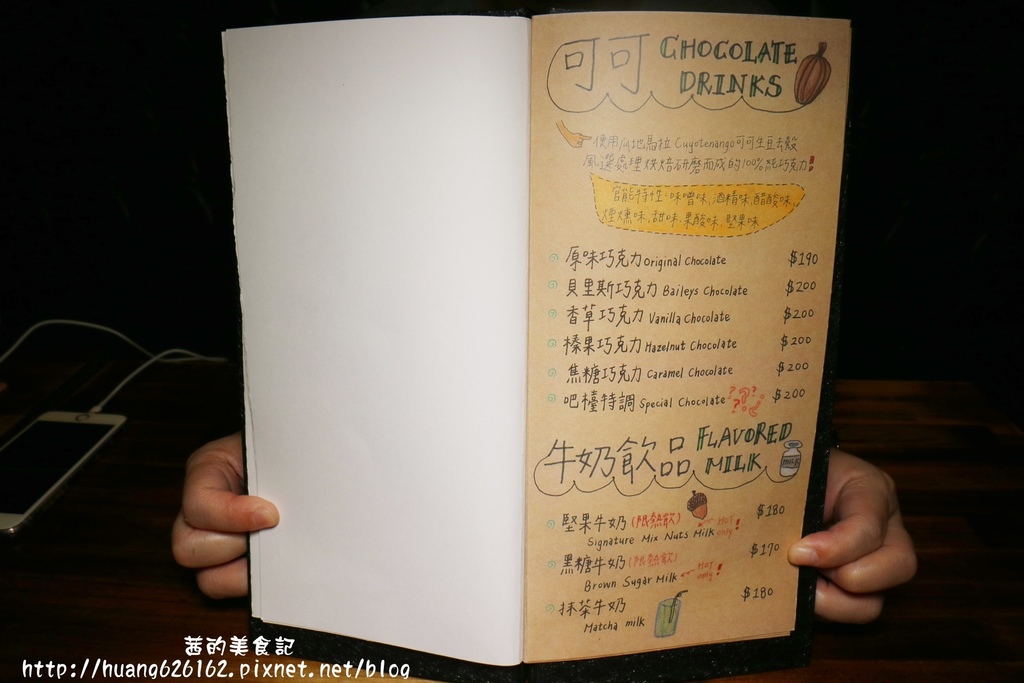 可可 CHOCOLATE
DRINKS
使用瓜地馬拉 Cuyotenango可可生豆去殼
風選處理烘焙研磨而成的100%純巧克力!
官能特性:味噌味,酒精味,醋酸味,
煙燻味,甜味,果酸味,堅果味
原味巧克力 Original Chocolate $190
貝里斯巧克力 Baileys Chocolate $200
香草巧克力 Vanilla Chocolate $200
榛果巧克力 Hazelnut Chocolate $200
焦糖巧克力 Caramel Chocolate $200
吧檯特調 Special Chocolate ??? $200
牛奶飲品 FLAVORED
MILK
MILK
堅果牛奶 (限熱飲) $180
Signature Mix Nuts Milk HOT only!
黑糖牛奶 (限熱飲) $170
Brown Sugar Milk HOT only!
抹茶牛奶 $180
Matcha milk
茜的美食記
http://huang626162.pixnet.net/blog